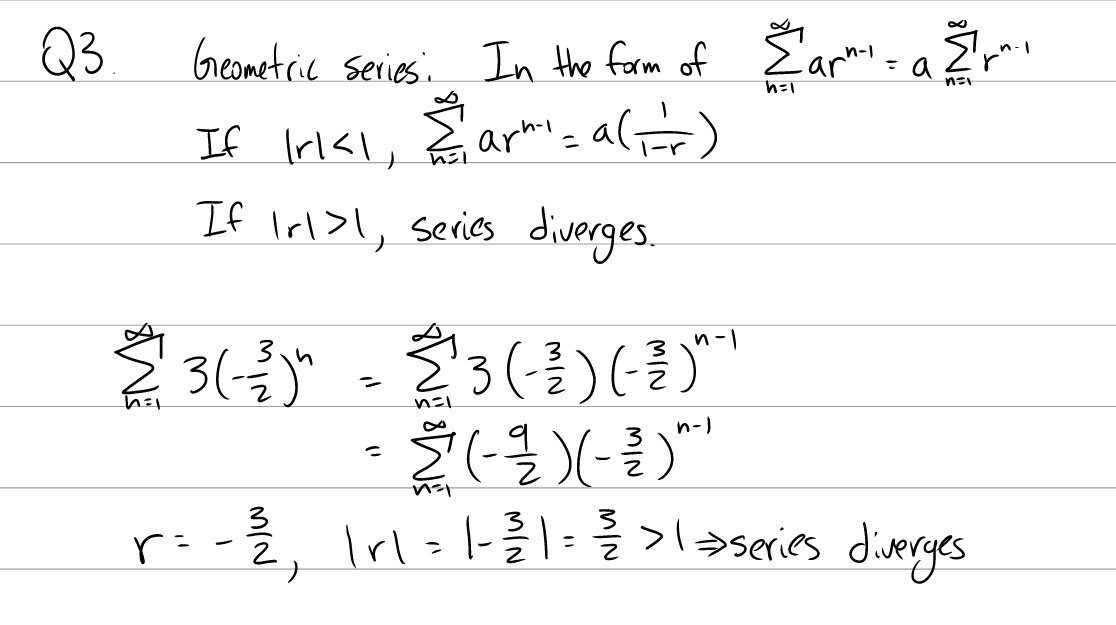 Q3. Geometric series: In the form of \sum_{n=1}^{\infty} ar^{n-1} = a \sum_{n=1}^{\infty} r^{n-1}
If |r|<1, \sum_{n=1}^{\infty} ar^{n-1} = a(\frac{1}{1-r})
If |r|>1, series diverges.
\sum_{n=1}^{\infty} 3(-\frac{3}{2})^n = \sum_{n=1}^{\infty} 3(-\frac{3}{2})(-\frac{3}{2})^{n-1}
= \sum_{n=1}^{\infty} (-\frac{9}{2})(-\frac{3}{2})^{n-1}
r = -\frac{3}{2}, |r| = |-\frac{3}{2}| = \frac{3}{2} > 1 ⇒ series diverges